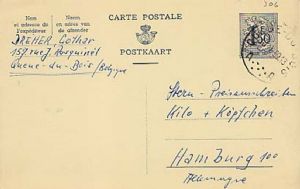 306
CARTE POSTALE
POSTKAART
Nom et adresse de l'expéditeur
Naam en adres van de afzender
DREHER Lothar
157, rue J.
Queue-du-Bois / Belgique
Stern-Preisausschreiben
Kilo + Köpfchen
Hamburg 100
Allemagne